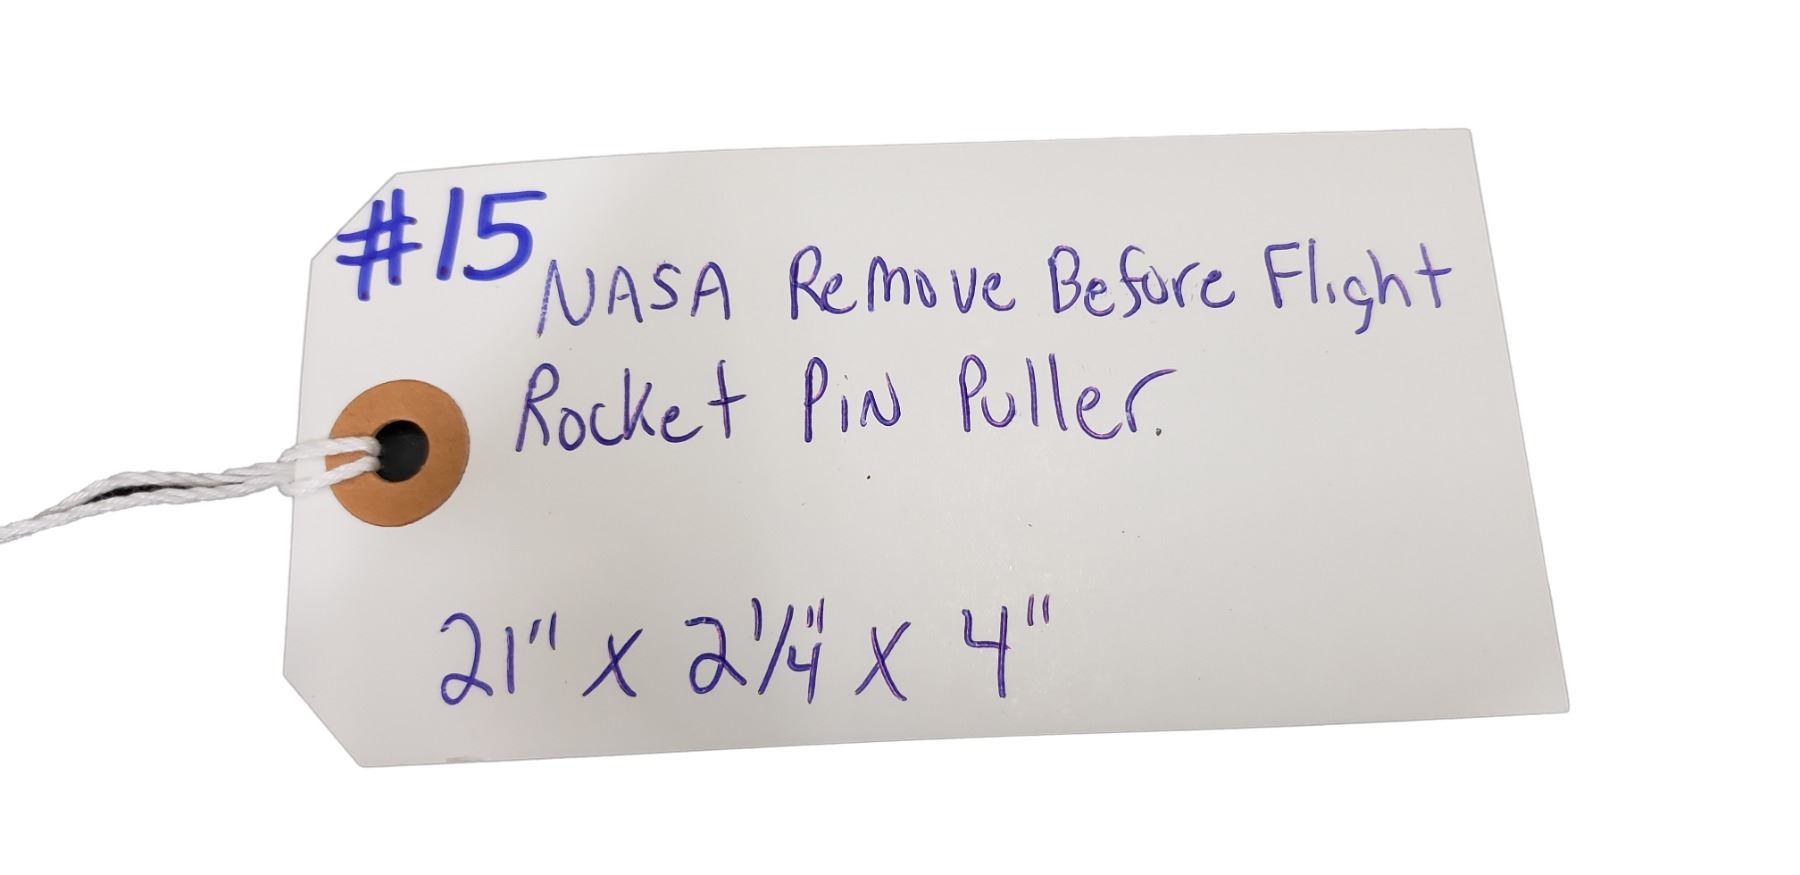 #15
NASA Remove Before Flight
Rocket Pin Puller.
21" x 2 1/4" x 4"